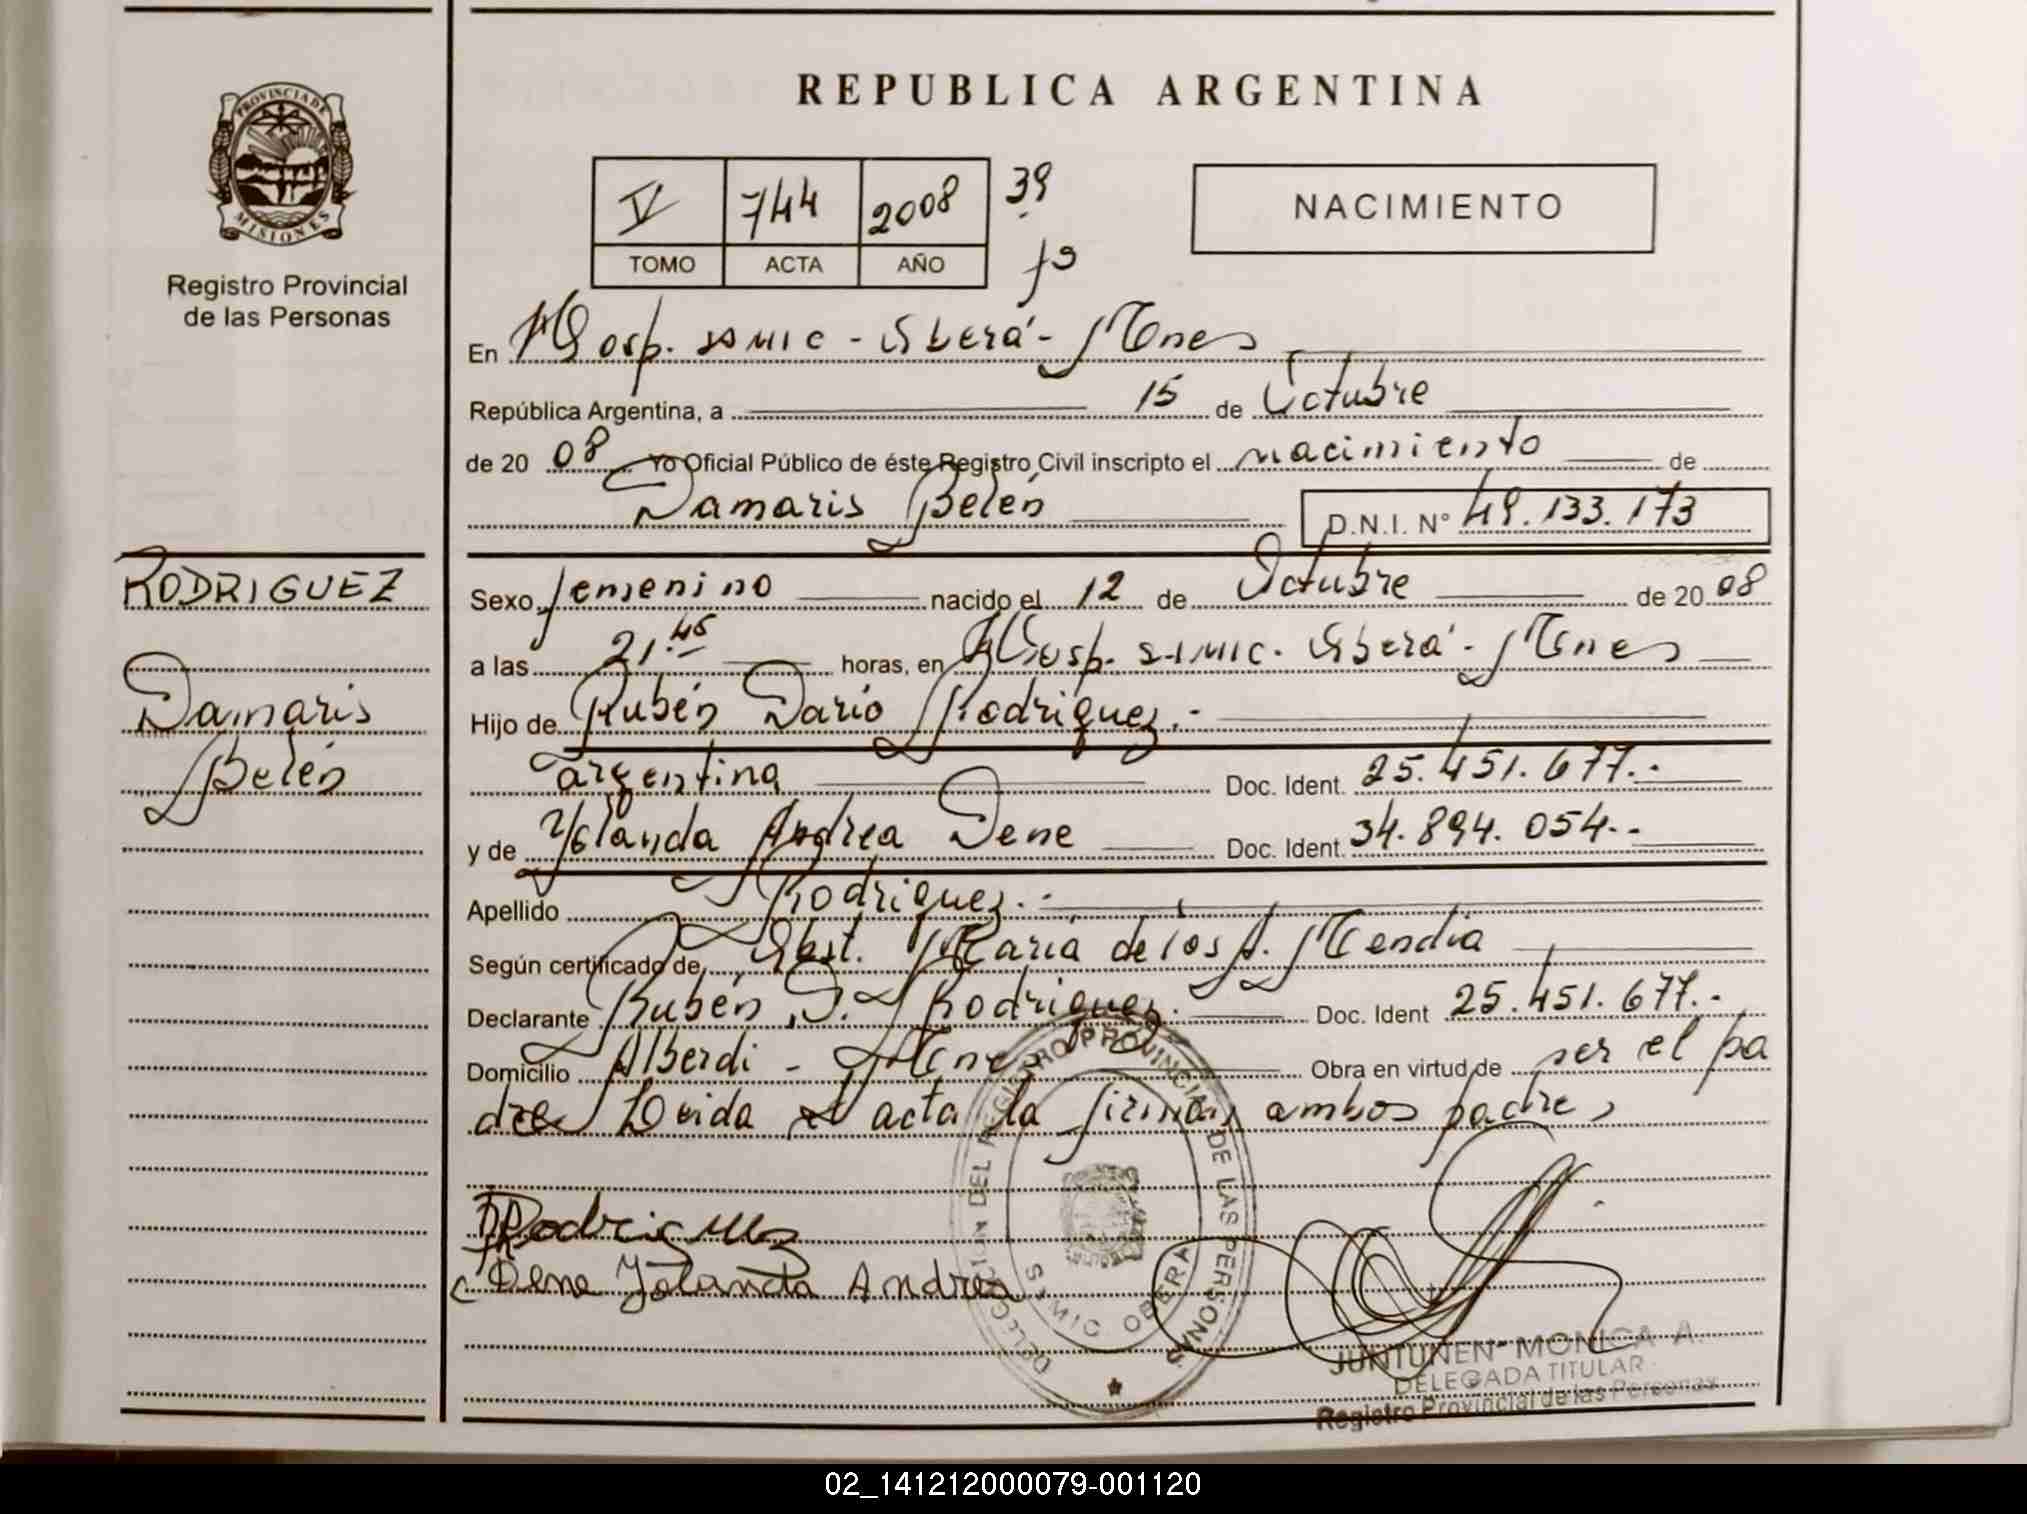 PROVINCIA DE
MISIONES
Registro Provincial
de las Personas
RODRIGUEZ
Damaris
Belén
REPUBLICA ARGENTINA
V 744 2008 39
TOMO ACTA AÑO fs
NACIMIENTO
En Hosp. SAMIC - Oberá - Mnes
República Argentina, a 15 de Octubre
de 20 08 Yo Oficial Público de éste Registro Civil inscripto el nacimiento de
Damaris Belén D.N.I. N° 49.133.173
Sexo femenino nacido el 12 de Octubre de 20 08
a las 21.45 horas, en Hosp. SAMIC. Oberá - Mnes
Hijo de Rubén Darío Rodriguez.-
argentina Doc. Ident. 25.451.677.-
y de Yolanda Andrea Dene Doc. Ident. 34.894.054.-
Apellido Rodriguez.-
Según certificado de Obst. María de los A. Mendia
Declarante Rubén D. Rodriguez. Doc. Ident 25.451.677.-
Domicilio Alberdi - Mnes Obra en virtud de ser el pa
dre Leida el acta la firman ambos padres
Rodriguez
Dene Yolanda Andrea
DELEGACION DEL REGISTRO PROVINCIAL DE LAS PERSONAS
SAMIC OBERA
JUNTUNEN MONICA A.
DELEGADA TITULAR
Registro Provincial de las Personas
02_141212000079-001120